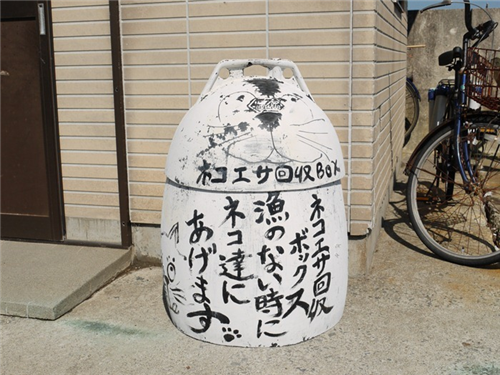 ネコエサ回収BOX
ネコエサ回収
ボックス
漁のない時に
ネコ達に
あげます